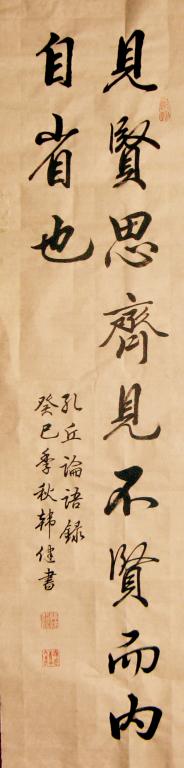 見賢思齊見不賢而内
自省也
孔丘論語録
癸巳季秋韩健書